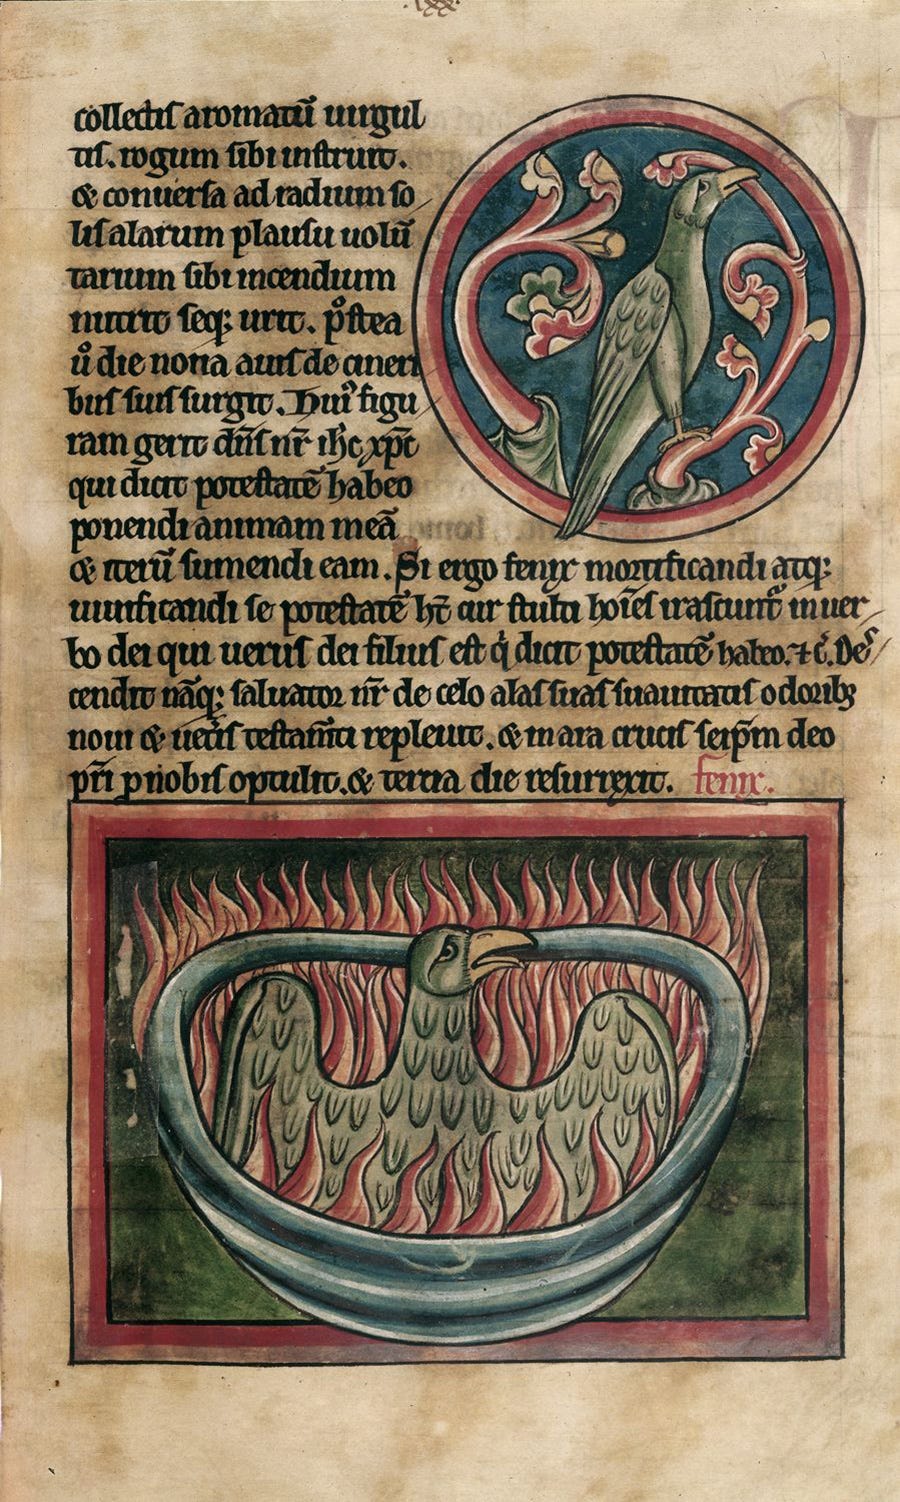 collectis aromatū uirgul
tis. rogum sibi instruit.
& conuersa ad radium so
lis alarum plausu uolū
tarium sibi incendium
nutrit seq; urit. p̊stea
ů die nona auis de cineri
bus suis surgit. Huiꝰ figu
ram gerit dn̄s nr̄ ih̄c xp̄c
qui dicit potestatē habeo
ponendi animam meā
& iterū sumendi eam. Si ergo fenix mortificandi atq;
uiuificandi se potestatē ht̄ cur stulti hoīes irascunt᷑ in uer
bo dei qui uerus dei filius est q̇ dicit potestatē habeo. ⁊ c̄. Des
cendit nāq; saluator nr̄ de celo alas suas suauitatis odoribꝫ
noui & uet̄is testam̄ti repleuit. & in ara crucis seip̄m deo
pr̄i p nobis optulit. & tercia die resurrexit. fenix.